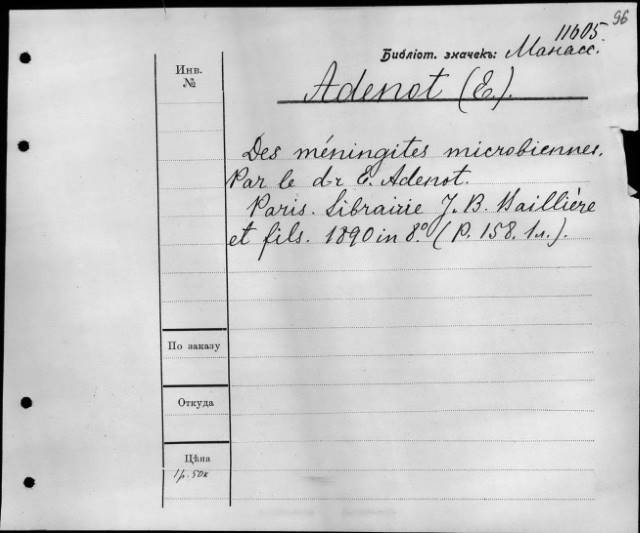 96
11605.
Библіот. значекъ: Манасс.
Инв.
№
Adenot (E.).
Des méningites microbiennes.
Par le dr E. Adenot.
Paris. Librairie J. B. Baillière
et fils. 1890 in 8º. (P. 158. 1л.).
По заказу
Откуда
Цѣна
1р. 50к